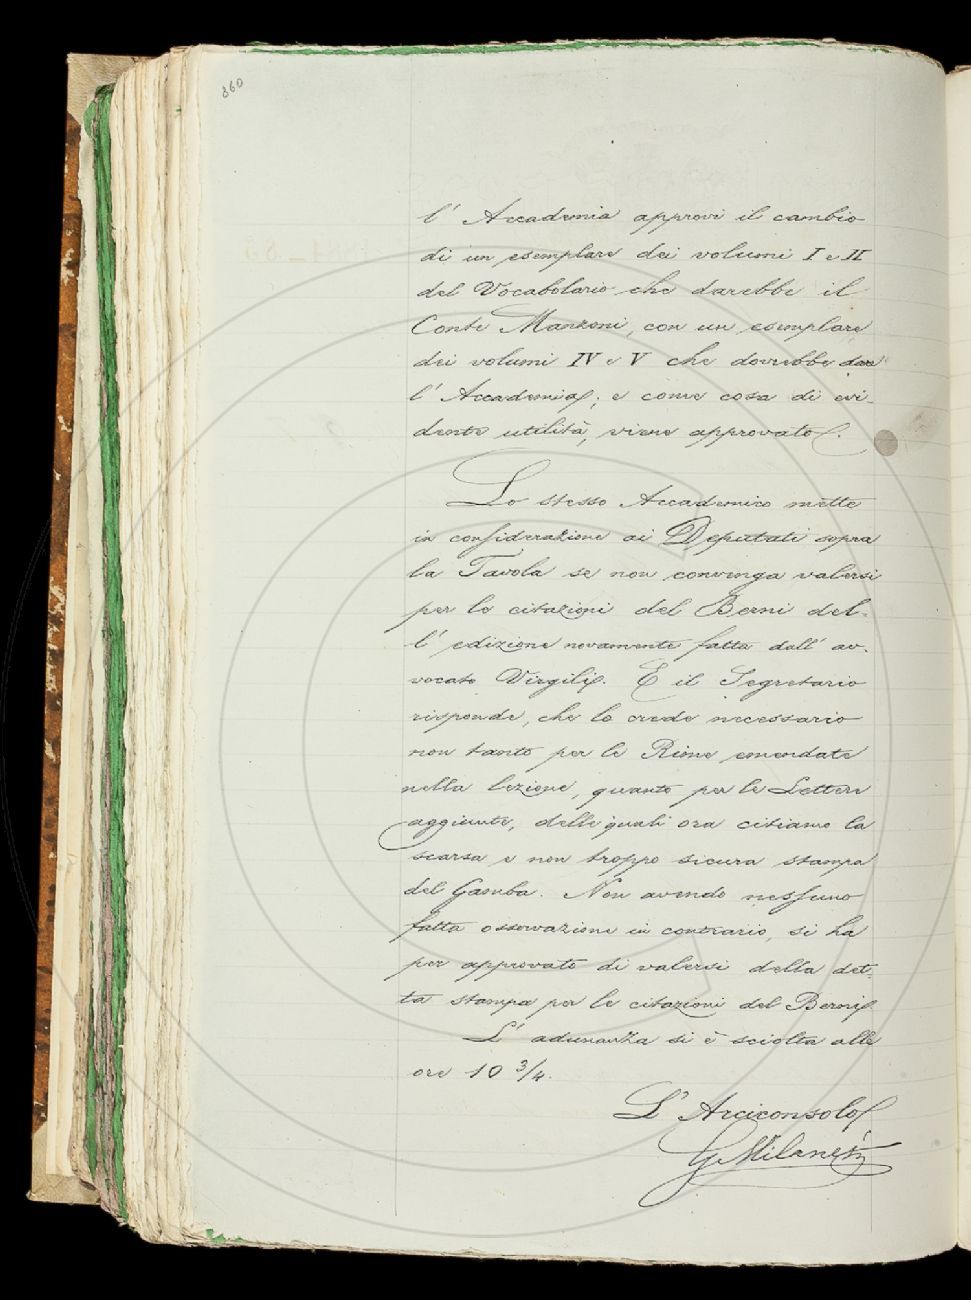 860
l' Accademia approvi il cambio
di un esemplare dei volumi I e II
del Vocabolario che darebbe il
Conte Manzoni, con un esemplare
dei volumi IV e V che dovrebbe dare
l' Accademia; e come cosa di evi-
dente utilità, viene approvato.
Lo stesso Accademico mette
in considerazione ai Deputati sopra
la Tavola se non convenga valersi
per le citazioni del Berni del-
l' edizione novamente fatta dall' av-
vocato Virgili. E il Segretario
risponde, che lo crede necessario
non tanto per le Rime emendate
nella lezione, quanto per le Lettere
aggiunte, delle quali ora citiamo la
scarsa e non troppo sicura stampa
del Gamba. Non avendo nessuno
fatta osservazione in contrario, si ha
per approvato di valersi della det-
ta stampa per le citazioni del Berni.
L' adunanza si è sciolta alle
ore 10 3/4.
L' Arciconsolo
G Milanesi